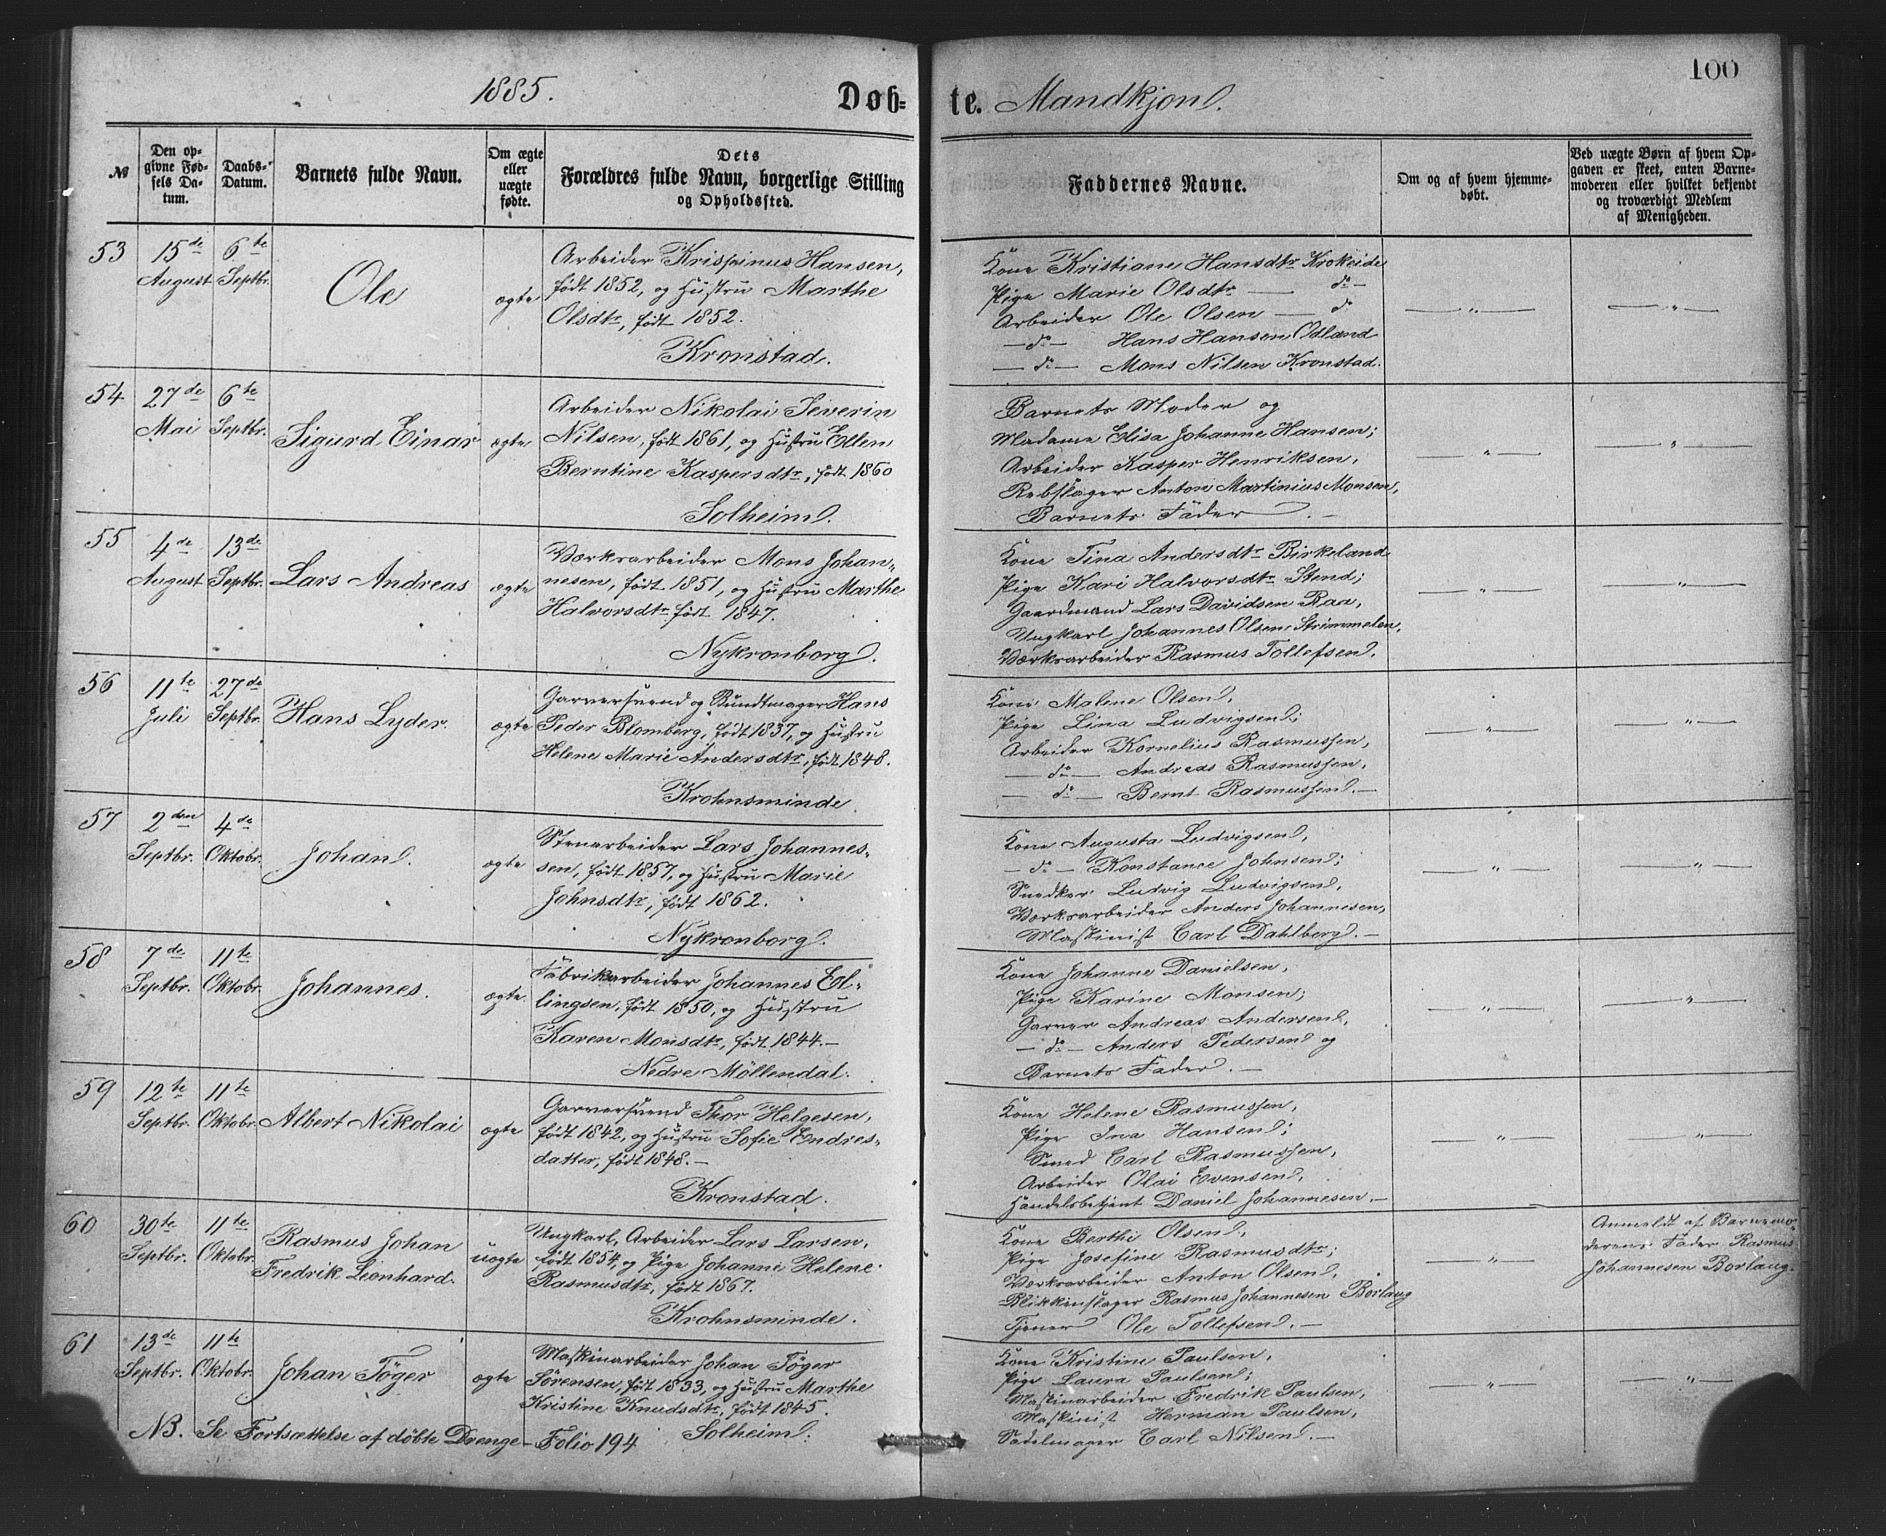 1885. Døb= te. Mandkjøn. 100
№
Den opgivne Fødsels Datum.
Daabs-Datum.
Barnets fulde Navn.
Om ægte eller uægte fødte.
Dets Forældres fulde Navn, borgerlige Stilling og Opholdssted.
Faddernes Navne.
Om og af hvem hjemmedøbt.
Ved uægte Børn af hvem Opgaven er skeet, enten Barnemoderen eller hvilket bekjendt og troværdigt Medlem af Menigheden.
53 15de August 6te Septbr. Ole ægte
Arbeider Krispinus Hansen,
født 1852, og Hustru Marthe
Olsdtr, født 1852.
Kronstad.
Kone Kristiane Hansdtr Krokeide
Pige Marie Olsdtr — do —
Arbeider Ole Olsen — do
— do — Hans Hansen Ødland
— do — Mons Nilsen Kronstad.
— " —
— " —
54 27de Mai 6te Septbr. Sigurd Einar ægte
Arbeider Nikolai Severin
Nilsen, født 1861, og Hustru Ellen
Berntine Kaspersdtr, født 1860
Solheim.
Barnets Moder og
Madame Elisa Johanne Hansen;
Arbeider Kasper Henriksen,
Rebslager Anton Martinius Monsen,
Barnets Fader. —
— " —
— " —
55 4de August 13de Septbr. Lars Andreas ægte
Værksarbeider Mons Johan=
nesen, født 1851, og Hustru Marthe
Halvorsdtr født 1847.
Nykronborg.
Kone Tina Andersdtr Birkeland
Pige Kari Halvorsdtr Stend;
Gaardmand Lars Davidsen Raa,
Ungkarl Johannes Olsen Strimmelen,
Værksarbeider Rasmus Tollefsen.
— " —
— " —
56 11te Juli 27de Septbr. Hans Lyder. ægte
Garversvend og Bundtmager Hans
Peder Blomberg, født 1837, og Hustru
Helene Marie Andersdtr, født 1848.
Krohnsminde.
Kone Malene Olsen,
Pige Lina Ludvigsen;
Arbeider Kornelius Rasmussen,
— do — Andreas Rasmussen,
— do — Bernt Rasmussen. —
— " —
— " —
57 2den Septbr. 4de Oktobr. Johan. ægte
Stenarbeider Lars Johannes=
sen, født 1857, og Hustru Marie
Johnsdtr, født 1862.
Nykronborg.
Kone Augusta Ludvigsen,
— do — Konstance Johnsen;
Snedker Ludvig Ludvigsen,
Værksarbeider Anders Johannesen,
Maskinist Carl Dahlberg. —
— " —
— " —
58 7de Septbr. 11te Oktobr. Johannes. ægte
Fabrikarbeider Johannes El=
lingsen, født 1850, og Hustru
Karen Monsdtr, født 1844. —
Nedre Møllendal.
Kone Johanne Danielsen,
Pige Karine Monsen;
Garver Andreas Andersen,
— do — Anders Pedersen og
Barnets Fader. —
— " —
— " —
59 12te Septbr. 11te Oktobr. Albert Nikolai ægte
Garversvend Thor Helgesen,
født 1842, og Hustru Sofie Endres=
datter, født 1848. —
Kronstad.
Kone Helene Rasmussen,
Pige Ina Hansen;
Smed Carl Rasmussen,
Arbeider Olai Evensen,
Handelsbetjent Daniel Johannesen —
— " —
— " —
60 30te Septbr. 11te Oktobr. Rasmus Johan Fredrik Leonhard. uægte
Ungkarl, Arbeider Lars Larsen,
født 1854, og Pige Johanne Helene
Rasmusdtr, født 1867.
Krohnsminde.
Kone Berthe Olsen,
Pige Josefine Rasmusdtr;
Værksarbeider Anton Olsen,
Blikkenslager Rasmus Johannesen Borlaug
Tjener Ole Tollefsen. —
— " —
Anmeldt af Barnemo=
derens Fader Rasmus
Johannesen Borlaug.
61 13de Septbr. 11te Oktobr. Johan Tøger ægte
Maskinarbeider Johan Tøger
Sørensen, født 1833, og Hustru Marthe
Kristine Knudsdtr, født 1845.
Solheim.
Kone Kristine Paulsen,
Pige Laura Paulsen;
Maskinarbeider Fredrik Paulsen,
Maskinist Herman Paulsen,
Sadelmager Carl Nilsen. —
— " —
— " —
NB. Se Fortsættelse af døbte Drenge — Folio 194